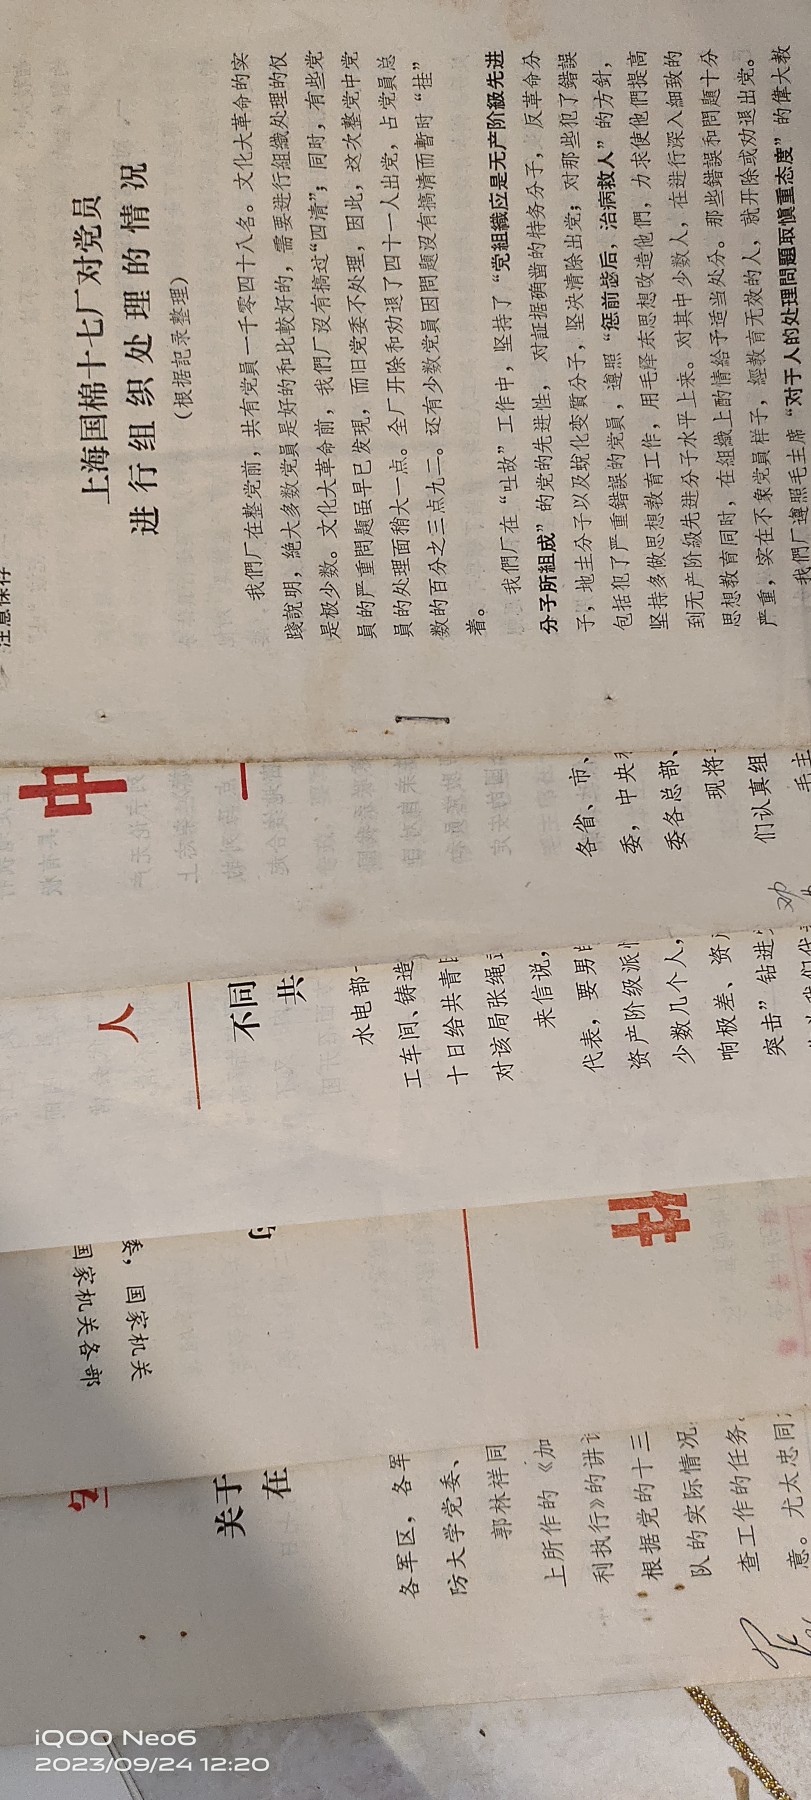 注意保存
上海国棉十七厂对党员
进行组织处理的情况
（根据記录整理）
我們厂在整党前，共有党員一千零四十八名。文化大革命的实
踐說明，絶大多数党員是好的和比較好的，需要进行組織处理的仅
是极少数。文化大革命前，我們厂沒有搞过“四清”；同时，有些党
員的严重問題虽早已发現，而旧党委不处理，因此，这次整党中党
員的处理面稍大一点。全厂开除和劝退了四十一人出党，占党員总
数的百分之三点九二。还有少数党員因問題沒有搞清而暫时“挂”
着。
我們厂在“吐故”工作中，坚持了“党組織应是无产阶級先进
分子所組成”的党的先进性，对証据确凿的特务分子，反革命分
子，地主分子以及蜕化变質分子，坚决清除出党；对那些犯了錯誤
包括犯了严重錯誤的党員，遵照“惩前毖后，治病救人”的方針，
坚持多做思想教育工作，用毛泽东思想改造他們，力求使他們提高
到无产阶級先进分子水平上来。对其中少数人，在进行深入細致的
思想教育同时，在組織上酌情給予适当处分。那些錯誤和問題十分
严重，实在不象党員样子，經教育无效的人，就开除或劝退出党。
我們厂遵照毛主席“对于人的处理問題取慎重态度”的偉大教
中
各省、市、
委，中央
委各总部、
现将
们认真组
毛主
邓
人
不同
共
水电部
工车间、铸造
十日给共青
对该局张绳
来信说，
代表，要男
资产阶级派
少数几个人，
响极差、资
突击”钻进
件
委，国家机关
国家机关各部
关于
在
各军区，各军
防大学党委、
郭林祥同
上所作的《加
利执行》的讲
根据党的十三
队的实际情况
查工作的任务
意。尤太忠同
iQOO Neo6
2023/09/24 12:20